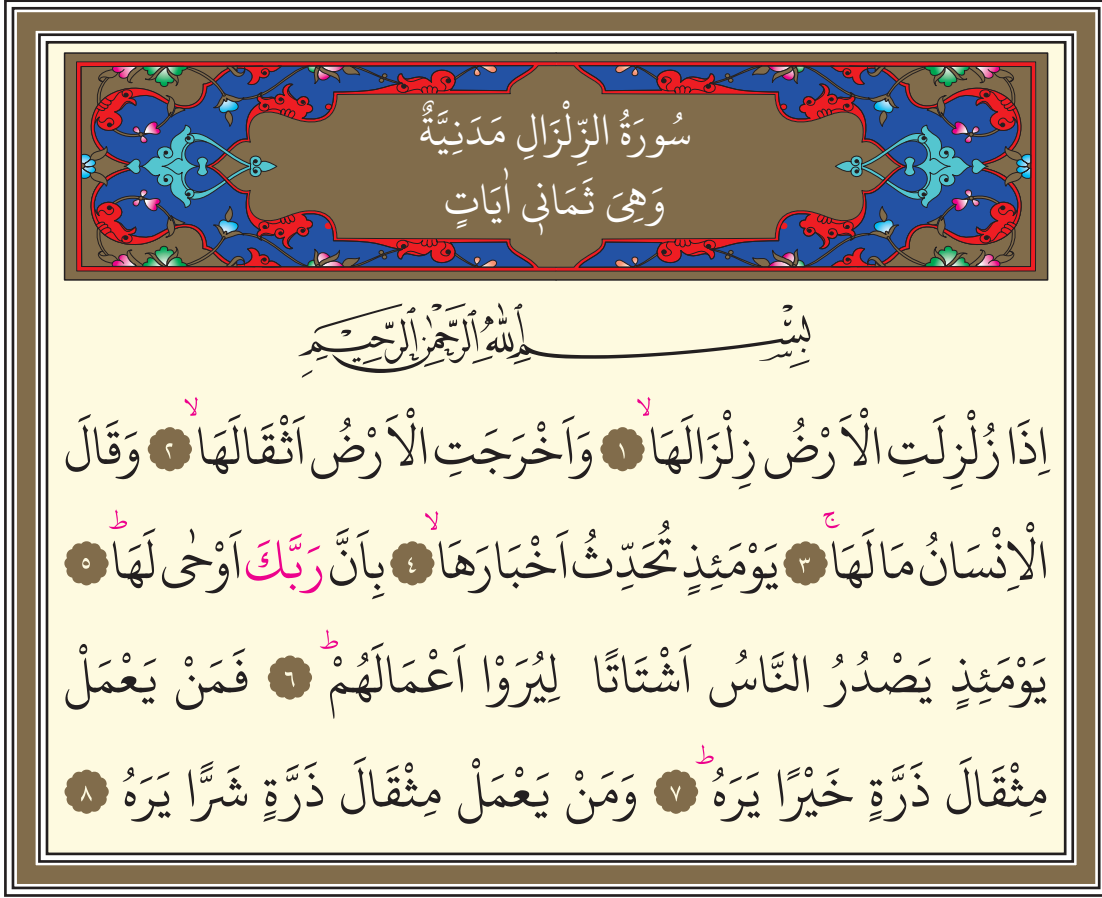 سُورَةُ الزِّلْزَالِ مَدَنِيَّةٌ
وَهِىَ ثَمَانٖى اٰيَاتٍ
بِسْمِ اللّٰهِ الرَّحْمٰنِ الرَّحٖيمِ
اِذَا زُلْزِلَتِ الْاَرْضُ زِلْزَالَهَاۙ ١ وَاَخْرَجَتِ الْاَرْضُ اَثْقَالَهَاۙ ٢ وَقَالَ
الْاِنْسَانُ مَالَهَاۚ ٣ يَوْمَئِذٍ تُحَدِّثُ اَخْبَارَهَاۙ ٤ بِاَنَّ رَبَّكَ اَوْحٰى لَهَاؕ ٥
يَوْمَئِذٍ يَصْدُرُ النَّاسُ اَشْتَاتًا لِيُرَوْا اَعْمَالَهُمْؕ ٦ فَمَنْ يَعْمَلْ
مِثْقَالَ ذَرَّةٍ خَيْرًا يَرَهُؕ ٧ وَمَنْ يَعْمَلْ مِثْقَالَ ذَرَّةٍ شَرًّا يَرَهُ ٨